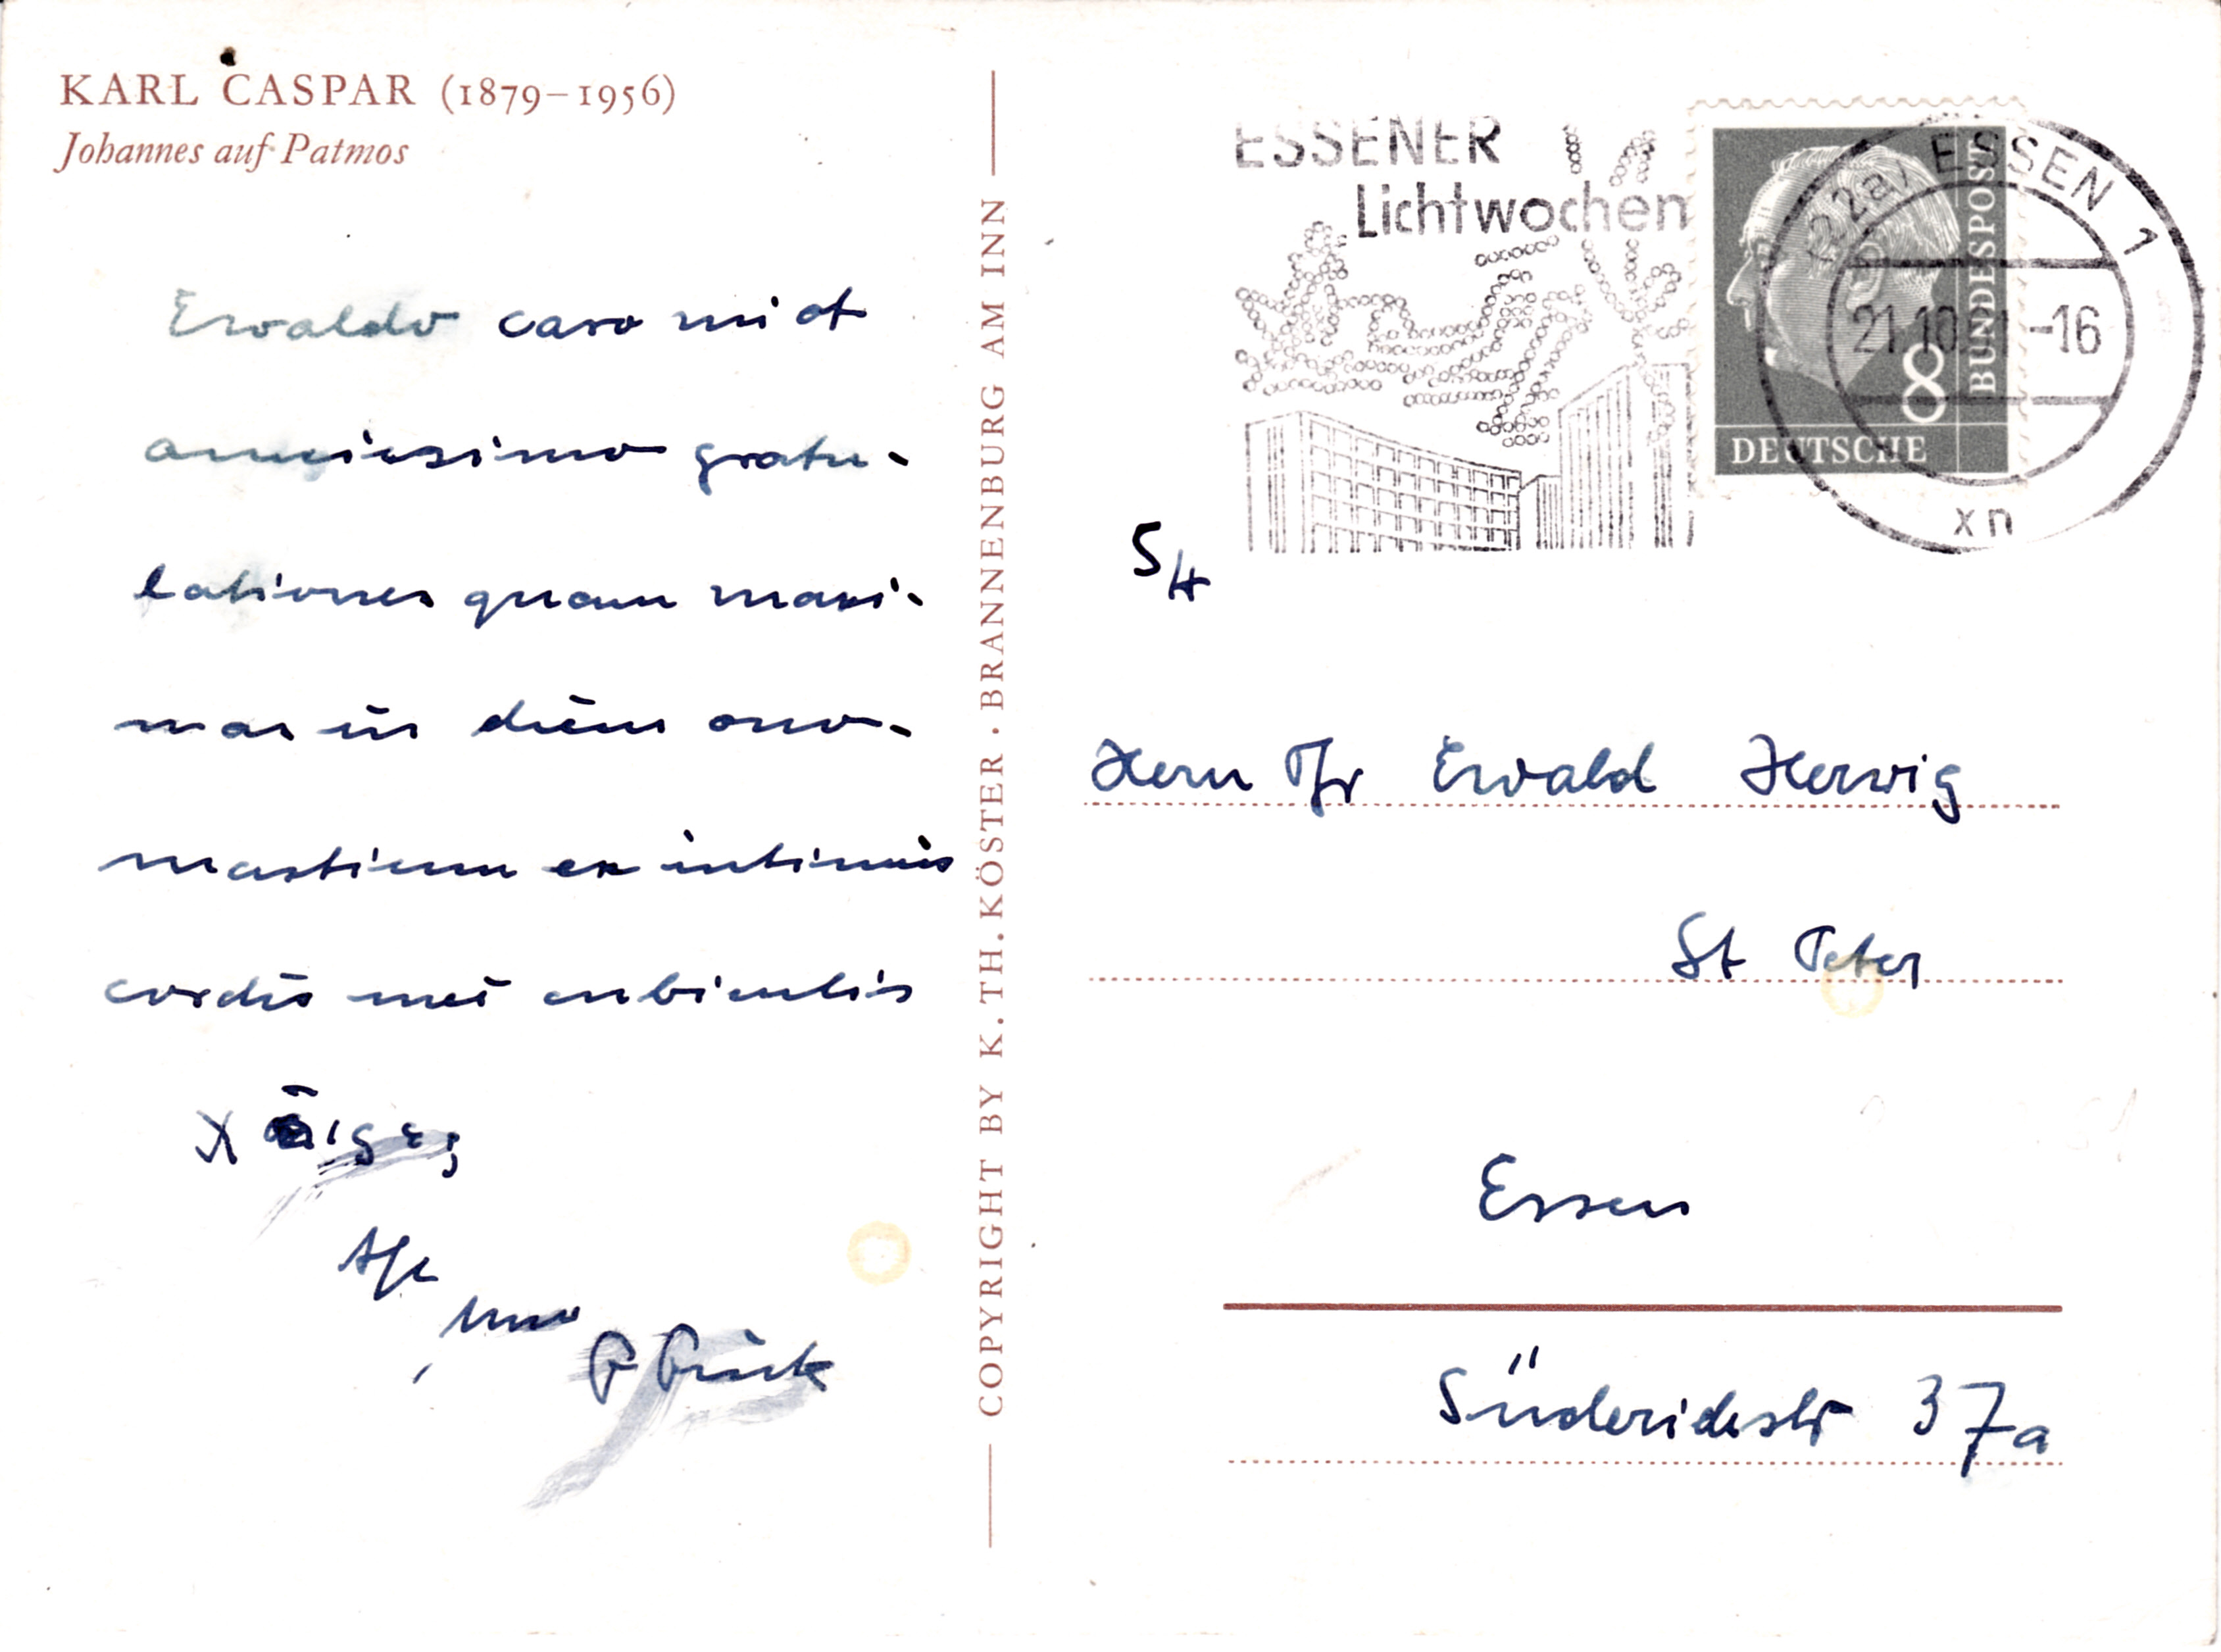 KARL CASPAR (1879–1956)
Johannes auf Patmos
Ewaldo caro mi et
amicissimo gratu-
lationes quam maxi-
mas in diem ono-
masticum ex intimis
cordis mei cubiculis
P Pück
COPYRIGHT BY K. TH. KÖSTER · BRANNENBURG AM INN
ESSENER
Lichtwochen
(22a) ESSEN 1
21.10. -16
xn
8
DEUTSCHE
BUNDESPOST
Herrn Pfr Ewald Herwig
St Peter
Essen
37a